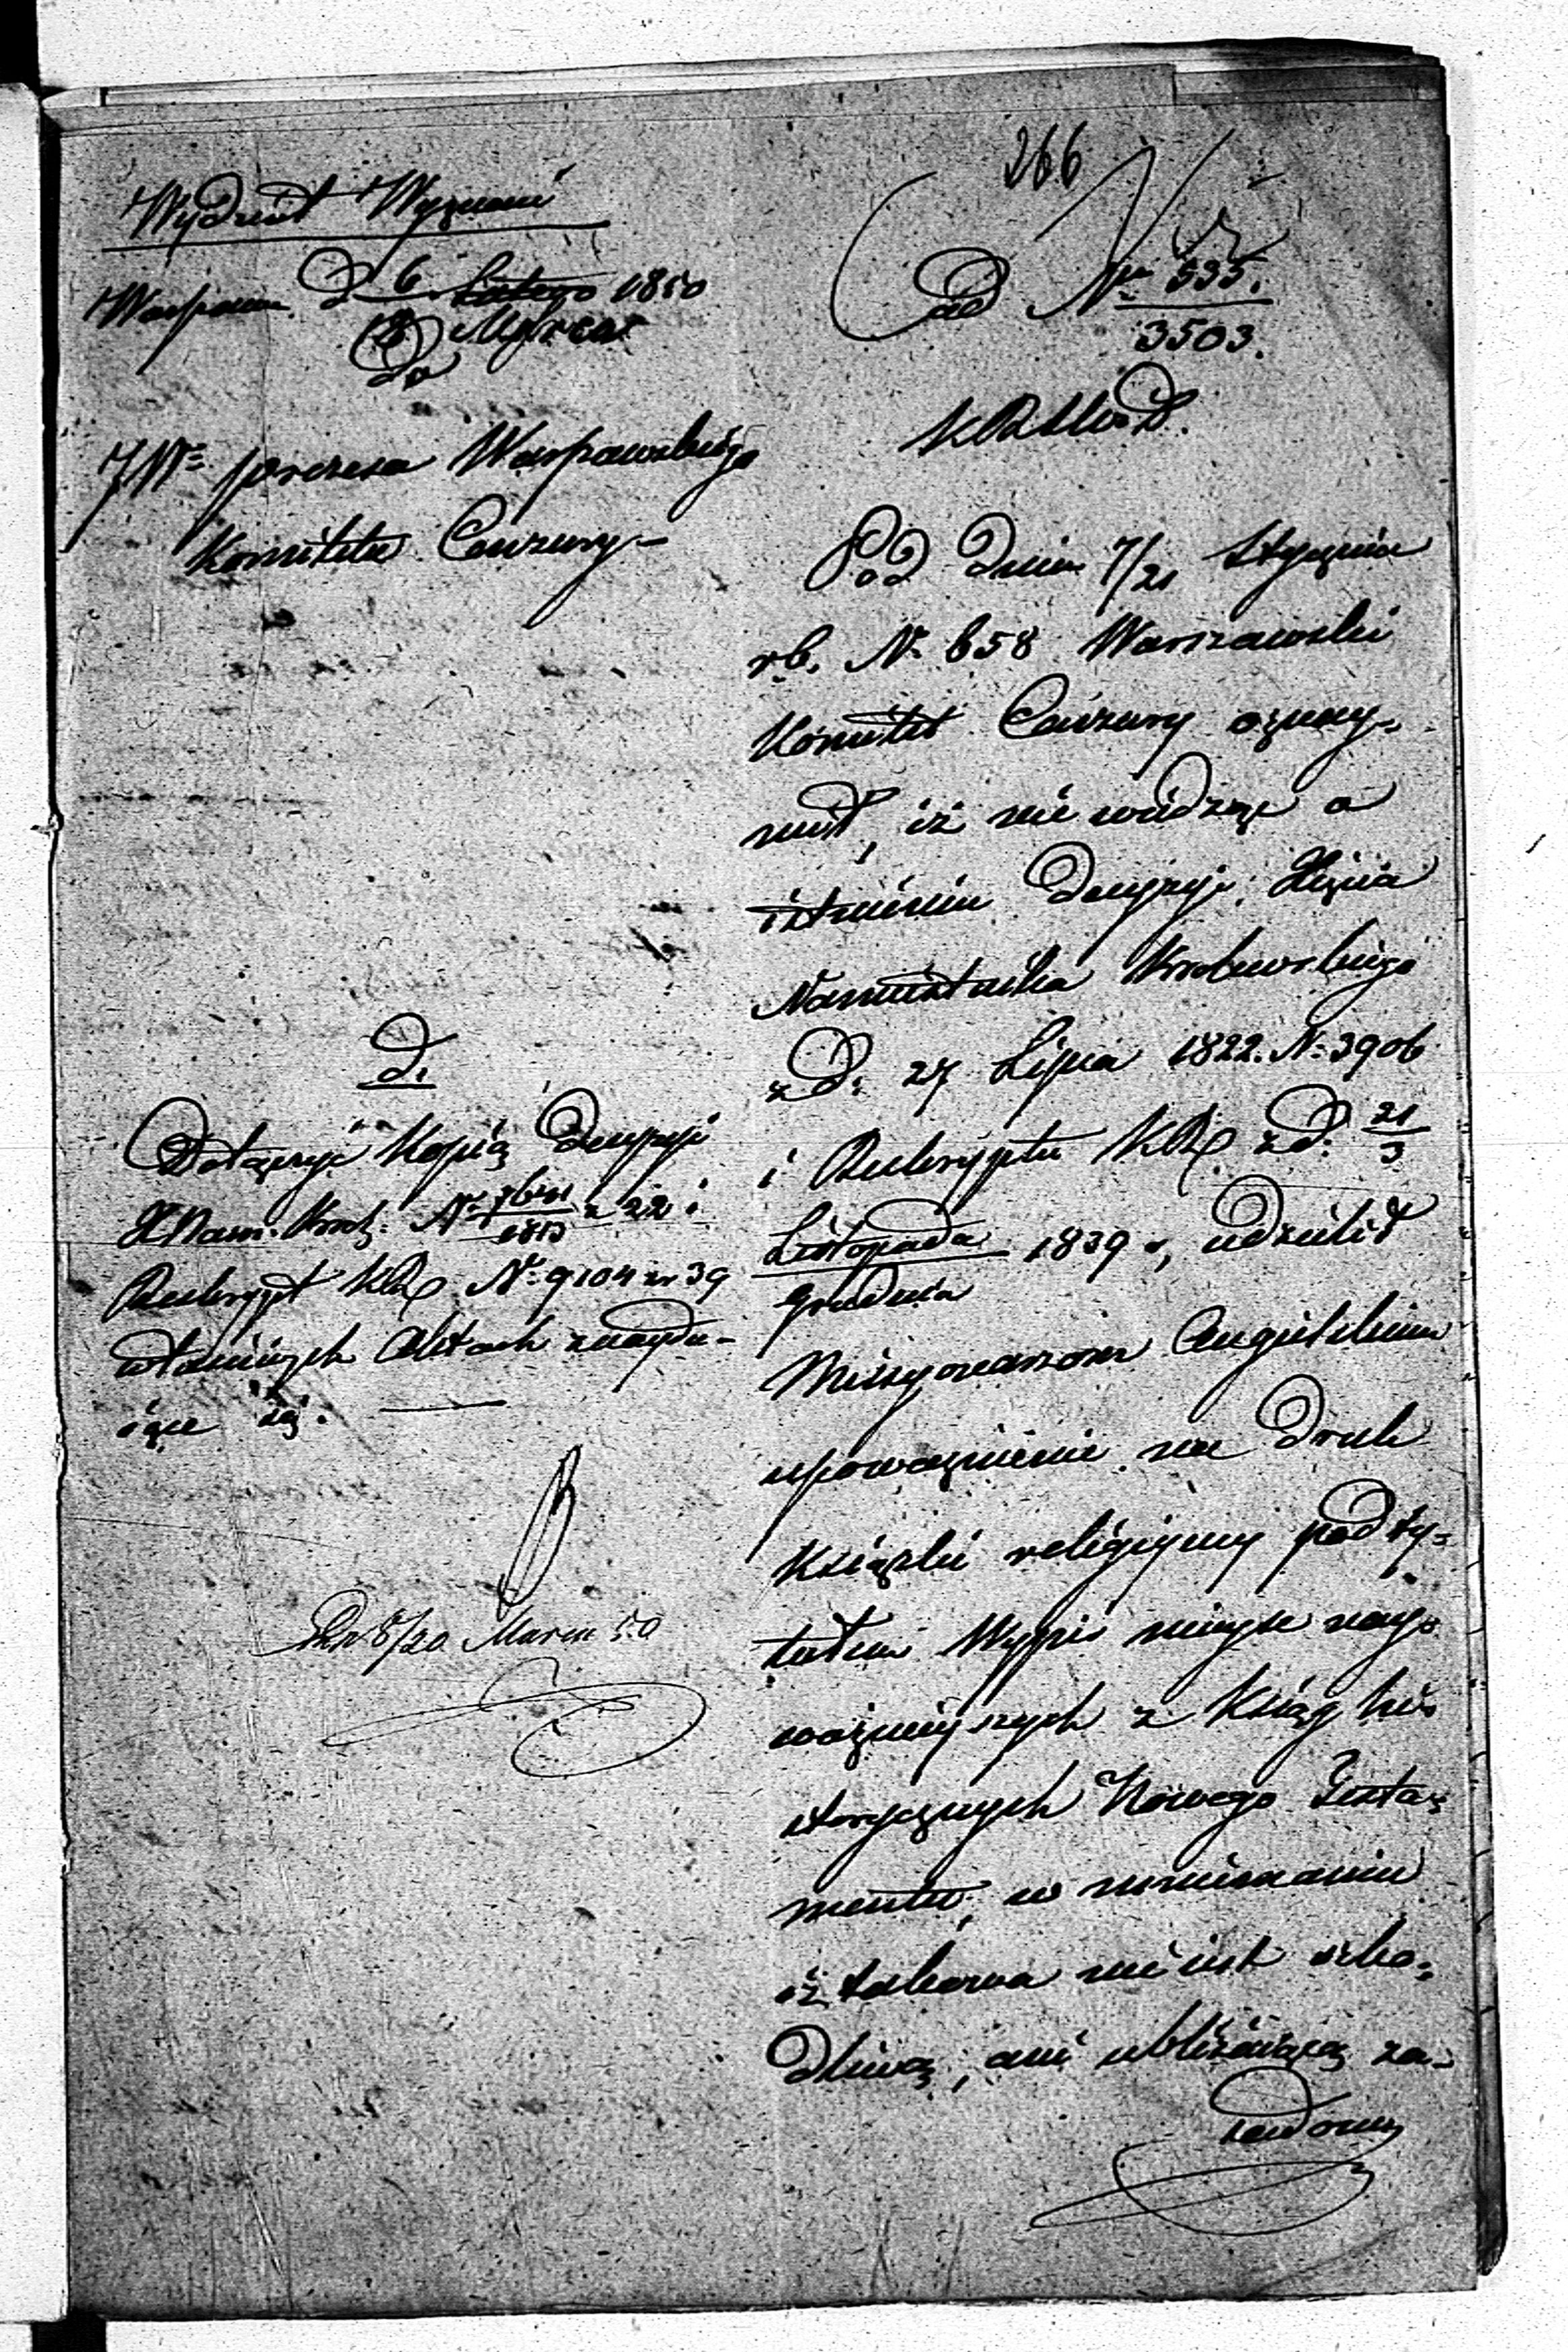 266
Wydział Wyznań
Warszawa d 6 Lutego 1850
Marca
Do
JW Prezesa Warszawskiego
Komitetu Cenzury
d.
Dołączyć Kopią Decyzyi
X Nam. Król. N 22 i
Reskrypt KR N. 9104 39
właściwych Aktach znaydu-
iące się.
8/20 Marca 50
ad N 535.
3503.
Pod dniem 7/21 Stycznia
rb. N. 658 Warszawski
Komitet Cenzury oznay-
mił, iż nie wiedząc o
istnieniu Decyzyi Xięcia
Namiestnika Królewskiego
z d. 27 Lipca 1822. N. 3906
i Reskryptu KR z d. 21/3
Listopada 1839 r, udzielił
Grudnia
Missyonarzom Angielskim
upoważnienie na druk
Książki religiyney pod ty-
tułem Wypis mieysc nay-
ważnieyszych z Ksiąg hi-
storycznych Nowego Testa-
mentu, w mniemaniu
iż takowa nie iest szko-
dliwą, ani ubliżaiącą za-
sadom